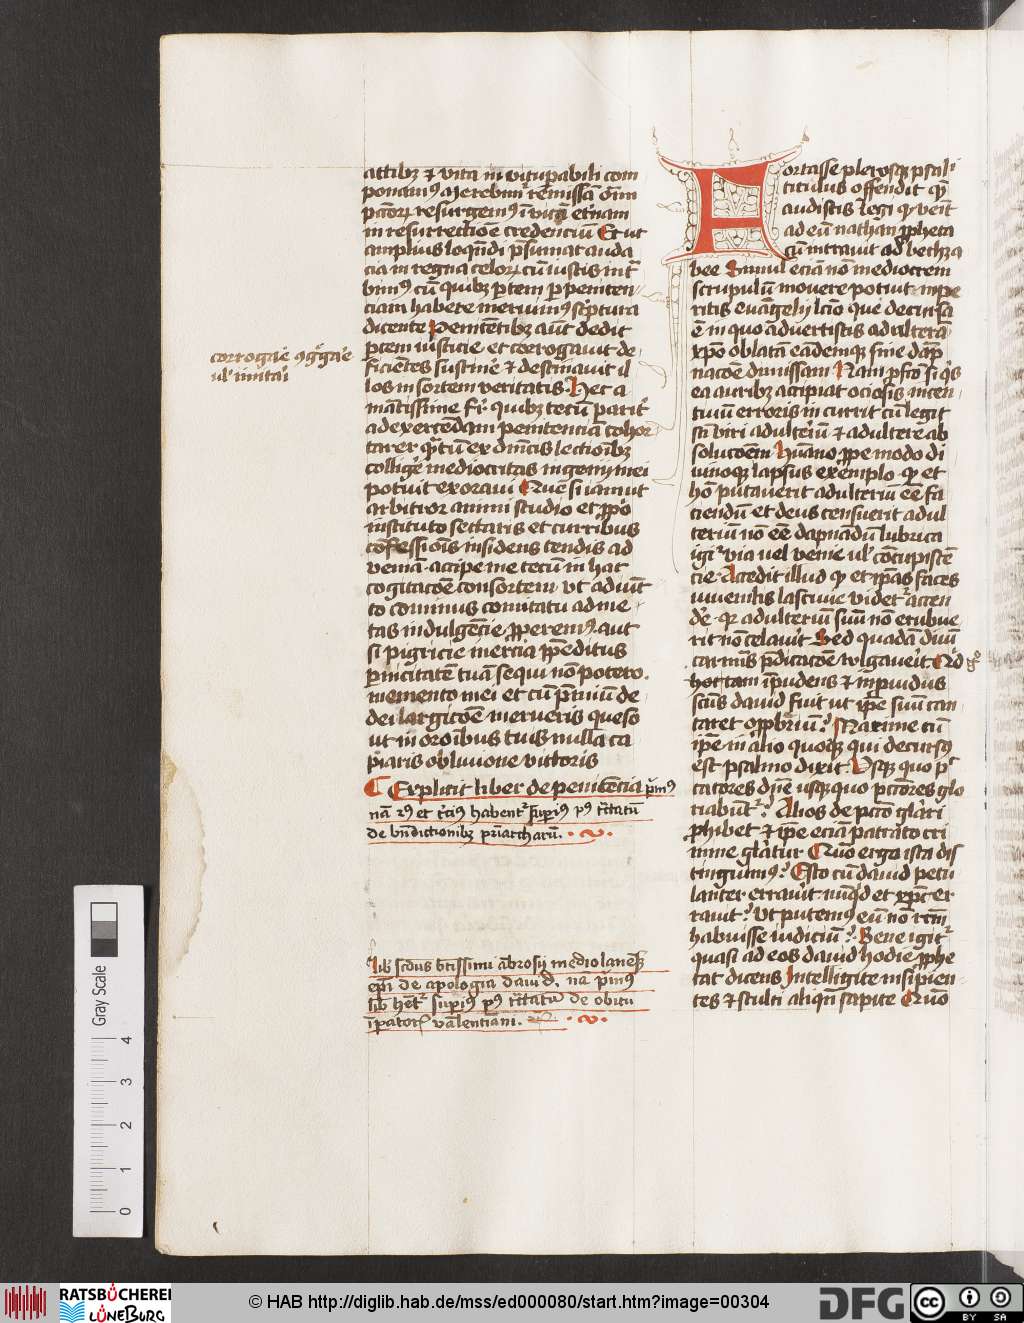 actibꝫ et vita in vituperabili com
ponamus Merebimur remissam omnium
peccatorum resurgemus in vitam eternam
in resurrectione credencium Et ut
amplius loquendi presumat auda
cia in regna celorum cum iustis intra
bimus cum quibus partem per peniten
ciam habere meruimus scriptura
dicente Penitentibus autem dedit
partem iusticie et corrogavit de
ficientes sustinere et destinavit il
los in sortem veritatis Hec a
mantissime frater quibus tecum pariter
ad exercendam penitenciam cohor
tarer quantum ex divinis lectionibus
colligere mediocritas ingenij mei
potuit exoravi Quem si iam ut
arbitror animi studio et proposito
instituto sectaris et curribus
confessionis insidens tendis ad
veniam accipe me tecum in hac
cogitacione consortem ut adiunc
to cominus comitatu ad me
tas indulgencie properemus aut
si pigricie inercia prepeditus
pernicitatem tuam sequi non potero
memento mei et cum premium de
dei largicione merueris queso
ut in oracionibus tuis nulla ca
piaris oblivione victoris
Explicit liber de penitencia primus
nam secundus et tercius habentur superius post tractatum
de benedictionibus patriarcharum
lib secundus beatissimi ambrosij mediolanensis
episcopi de apologia david nam primus
liber habetur superius post tractatum de obitu
imperatoris valentiani
corrogare congregare
vel invitare
Fortasse plerosque psal
titulus offendit quem
audistis legi quod venit
ad eum nathan propheta
cum intravit ad bethza
bee Simul eciam non mediocrem
scrupulum movere potuit inpe
ritis evangelij leccio que decursa
est in quo advertistis adultera
christo oblatam eandemque sine damp
nacione dimissam Nam profecto si quis
ea auribus accipiat ociosis incen
tivum erroris incurrit cum legit
sancti viri adulterium et adultere ab
solucionem Humano prope modo di
vinoque lapsus exemplo quod et
homo putaverit adulterium esse fa
ciendum et deus censuerit adul
terium non esse dampnandum lubrica
igitur via vel venie vel concupiscen
cie Accedit illud quod et ipsas faces
iuvenilis lascivie videtur accen
dere quia adulterium suum non erubue
rit non celaverit Sed quadam divini
carminis predicacione vulgaverit Quod
hortam inpudens et inprovidus
sanctus david fuit ut ipse suum can
taret opprobrium Maxime cum
ipse in alio quoque qui decursus
est psalmo dixit Usque quo pec
catores domine usquequo peccatores glo
riabuntur Alios de peccato gloriari
prohibet et ipse eciam patrato cri
mine gloriatur Quomodo ergo ista dis
tinguimus Esto cum david petu
lanter erraverit nunquid et christus er
ravit Ut putemus eum non rectum
habuisse iudicium Bene igitur
quasi ad eos david hodie prophe
tat dicens Intelligite insipien
tes et stulti aliquando sapite Quomodo
Gray Scale
4
3
2
1
0
RATSBÜCHEREI
LÜNEBURG
© HAB http://diglib.hab.de/mss/ed000080/start.htm?image=00304
DFG
cc
BY SA